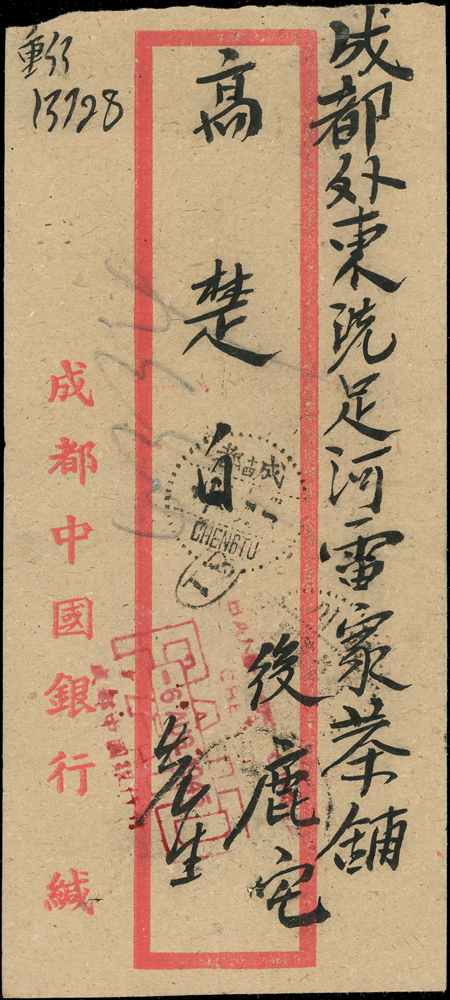 成都外東洗足河雷家茶鋪
後鹿宅
高楚白先生
成都中國銀行緘
13728
成都
CHENGTU